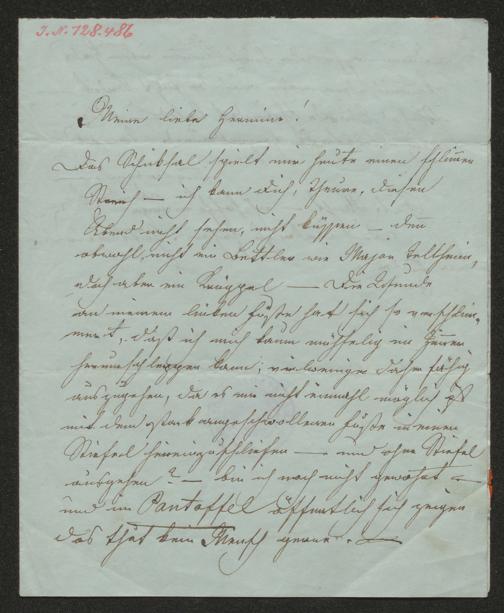 I.N. 128.486
Meine liebe Hermine!
Das Schicksal spielt mir heute einen schlimmen
Streich — ich kann dich, Theure, diesen
Abend nicht sehen, nicht küssen — denn
obwohl nicht ein Bettler wie Major Tellheim,
doch aber ein Krüppel — Die Wunde
an meinem linken Fuße hat sich so verschlim-
mert, daß ich mich kaum mühselig im Zimmer
herumschleppen kann; viel weniger daher fähig
auszugehen, da es mir nicht einmahl möglich ist
mit dem stark angeschwollenen Fuße in einen
Stiefel hereinzuschliefen — und ohne Stiefel
ausgehen? — bin ich noch nicht gewohnt —
und in Pantoffel öffentlich sich zeigen
das thut kein Mensch gerne. —